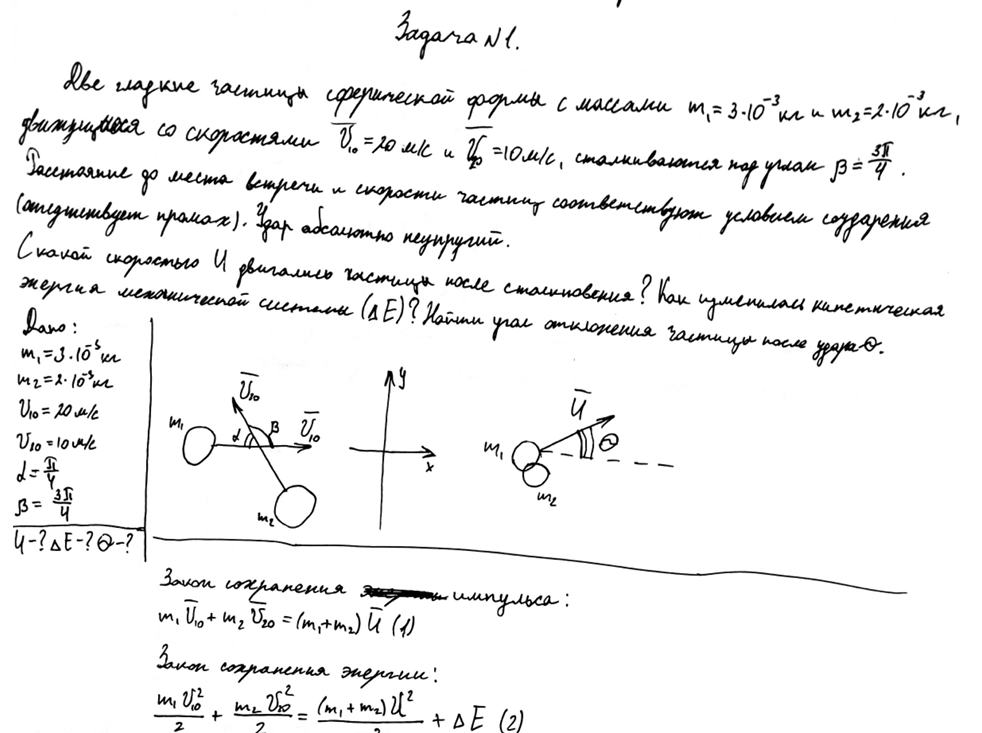 Задача N1.
Две гладкие частицы сферической формы с массами m₁=3·10⁻³кг и m₂=2·10⁻³кг,
движущиеся со скоростями V̅₁₀=20 м/с и V̅₂₀=10 м/с, сталкиваются под углом β=3π/4.
Расстояние до места встречи и скорости частиц соответствуют условием соударения
(отсутствует промах). Удар абсолютно неупругий.
С какой скоростью U двигались частицы после столкновения? Как изменилась кинетическая
энергия механической системы (ΔE)? Найти угол отклонения частицы после удара Θ.
Дано:
m₁=3·10⁻³кг
m₂=2·10⁻³кг
V₁₀=20м/с
V₂₀=10м/с
α=π/4
β=3π/4
U-? ΔE-? Θ-?
m₁ V̅₂₀ α β V̅₁₀ m₂
y x
m₁ U̅ Θ m₂
Закон сохранения импульса:
m₁V̅₁₀+m₂V̅₂₀=(m₁+m₂)U̅ (1)
Закон сохранения энергии:
m₁V₁₀²/2 + m₂V₂₀²/2 = (m₁+m₂)U²/2 + ΔE (2)